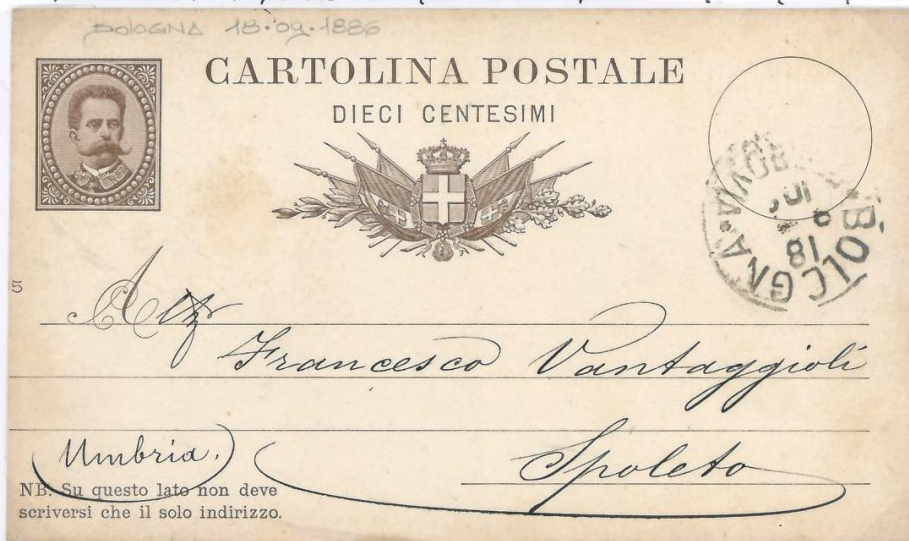 BOLOGNA 18·09·1886
CARTOLINA POSTALE
DIECI CENTESIMI
BOLOGNA
18
5
A
Francesco Vantaggioli
Umbria.)
Spoleto
NB. Su questo lato non deve
scriversi che il solo indirizzo.